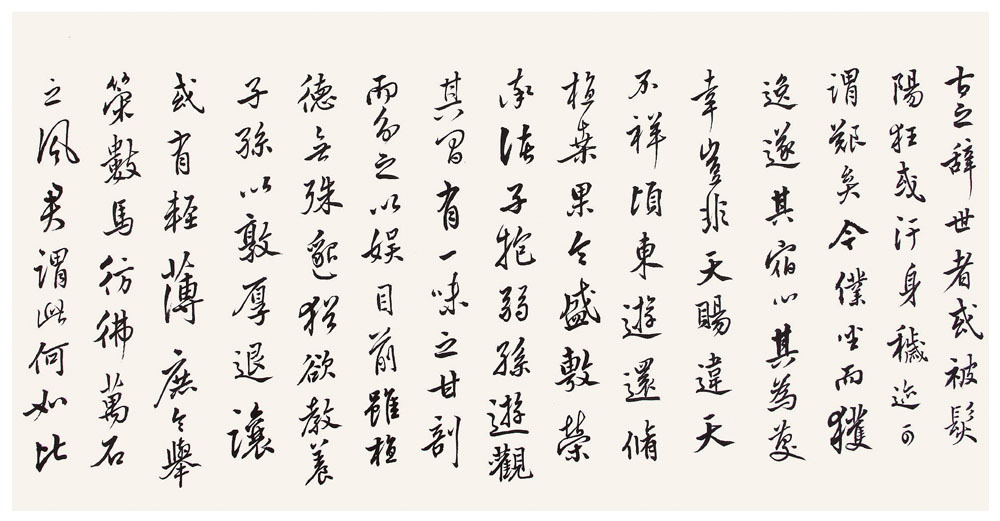 古之辞世者或被髮
陽狂或汙身穢迹可
謂艱矣今僕坐而獲
逸遂其宿心其為慶
幸豈非天賜違天
不祥頃東遊還脩
植桒果今盛敷榮
率諸子抱弱孫遊觀
其間有一味之甘剖
而分之以娛目前雖植
德無殊邈猶欲教養
子孫以敦厚退讓
或有輕薄庶令舉
策數馬彷彿萬石
之風君謂此何如比